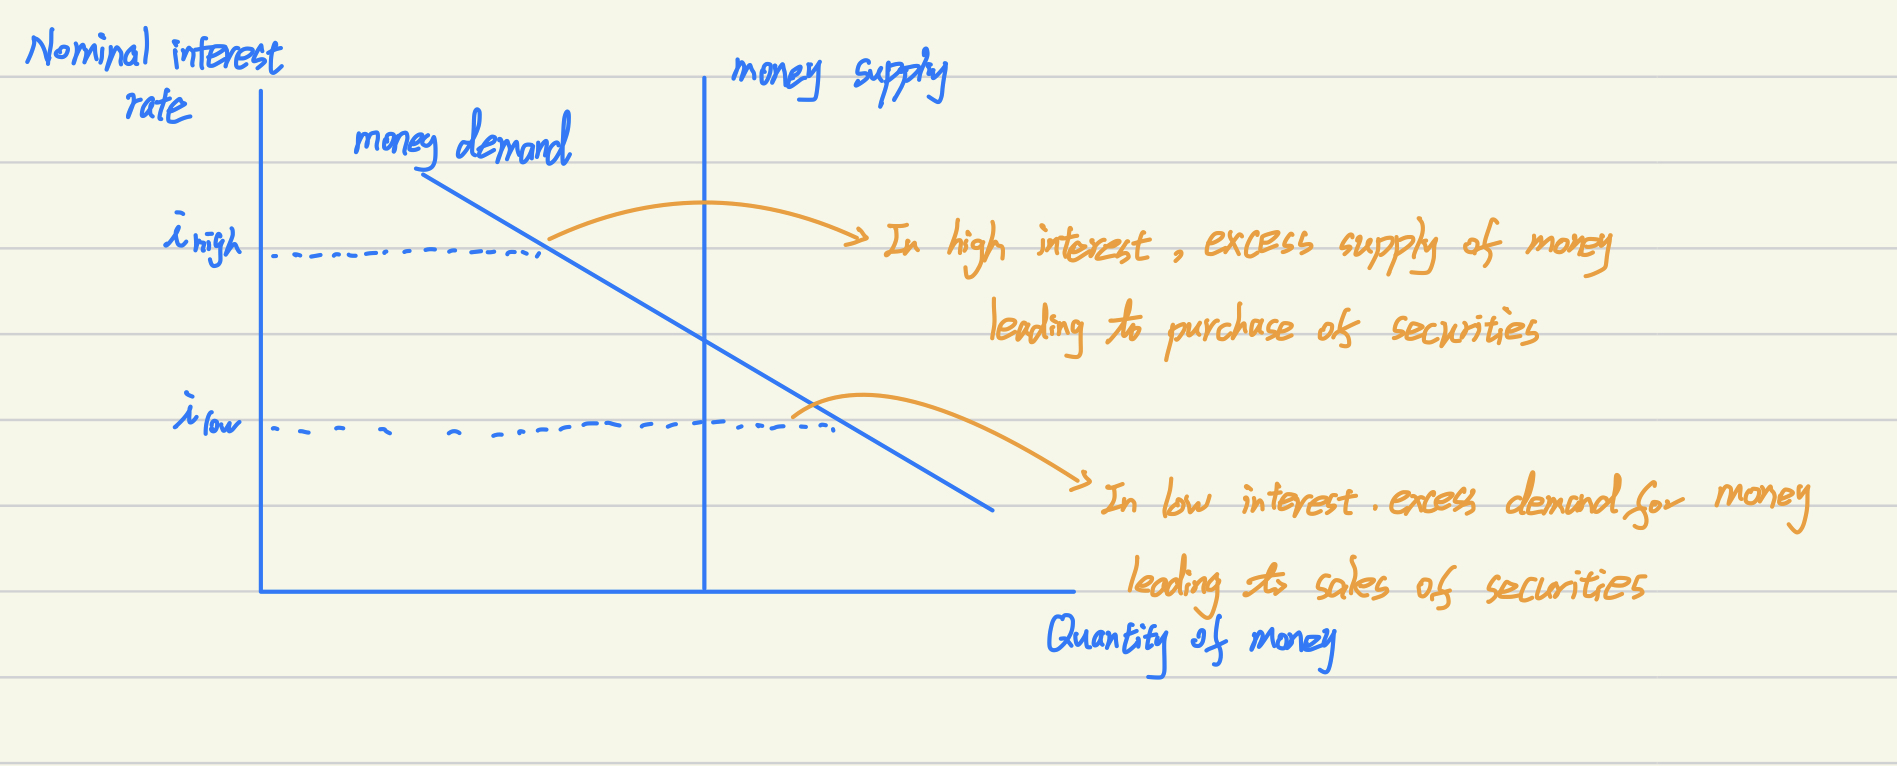 Nominal interest
rate
money supply
money demand
i high
In high interest, excess supply of money
leading to purchase of securities
i low
In low interest. excess demand for money
leading to sales of securities
Quantity of money